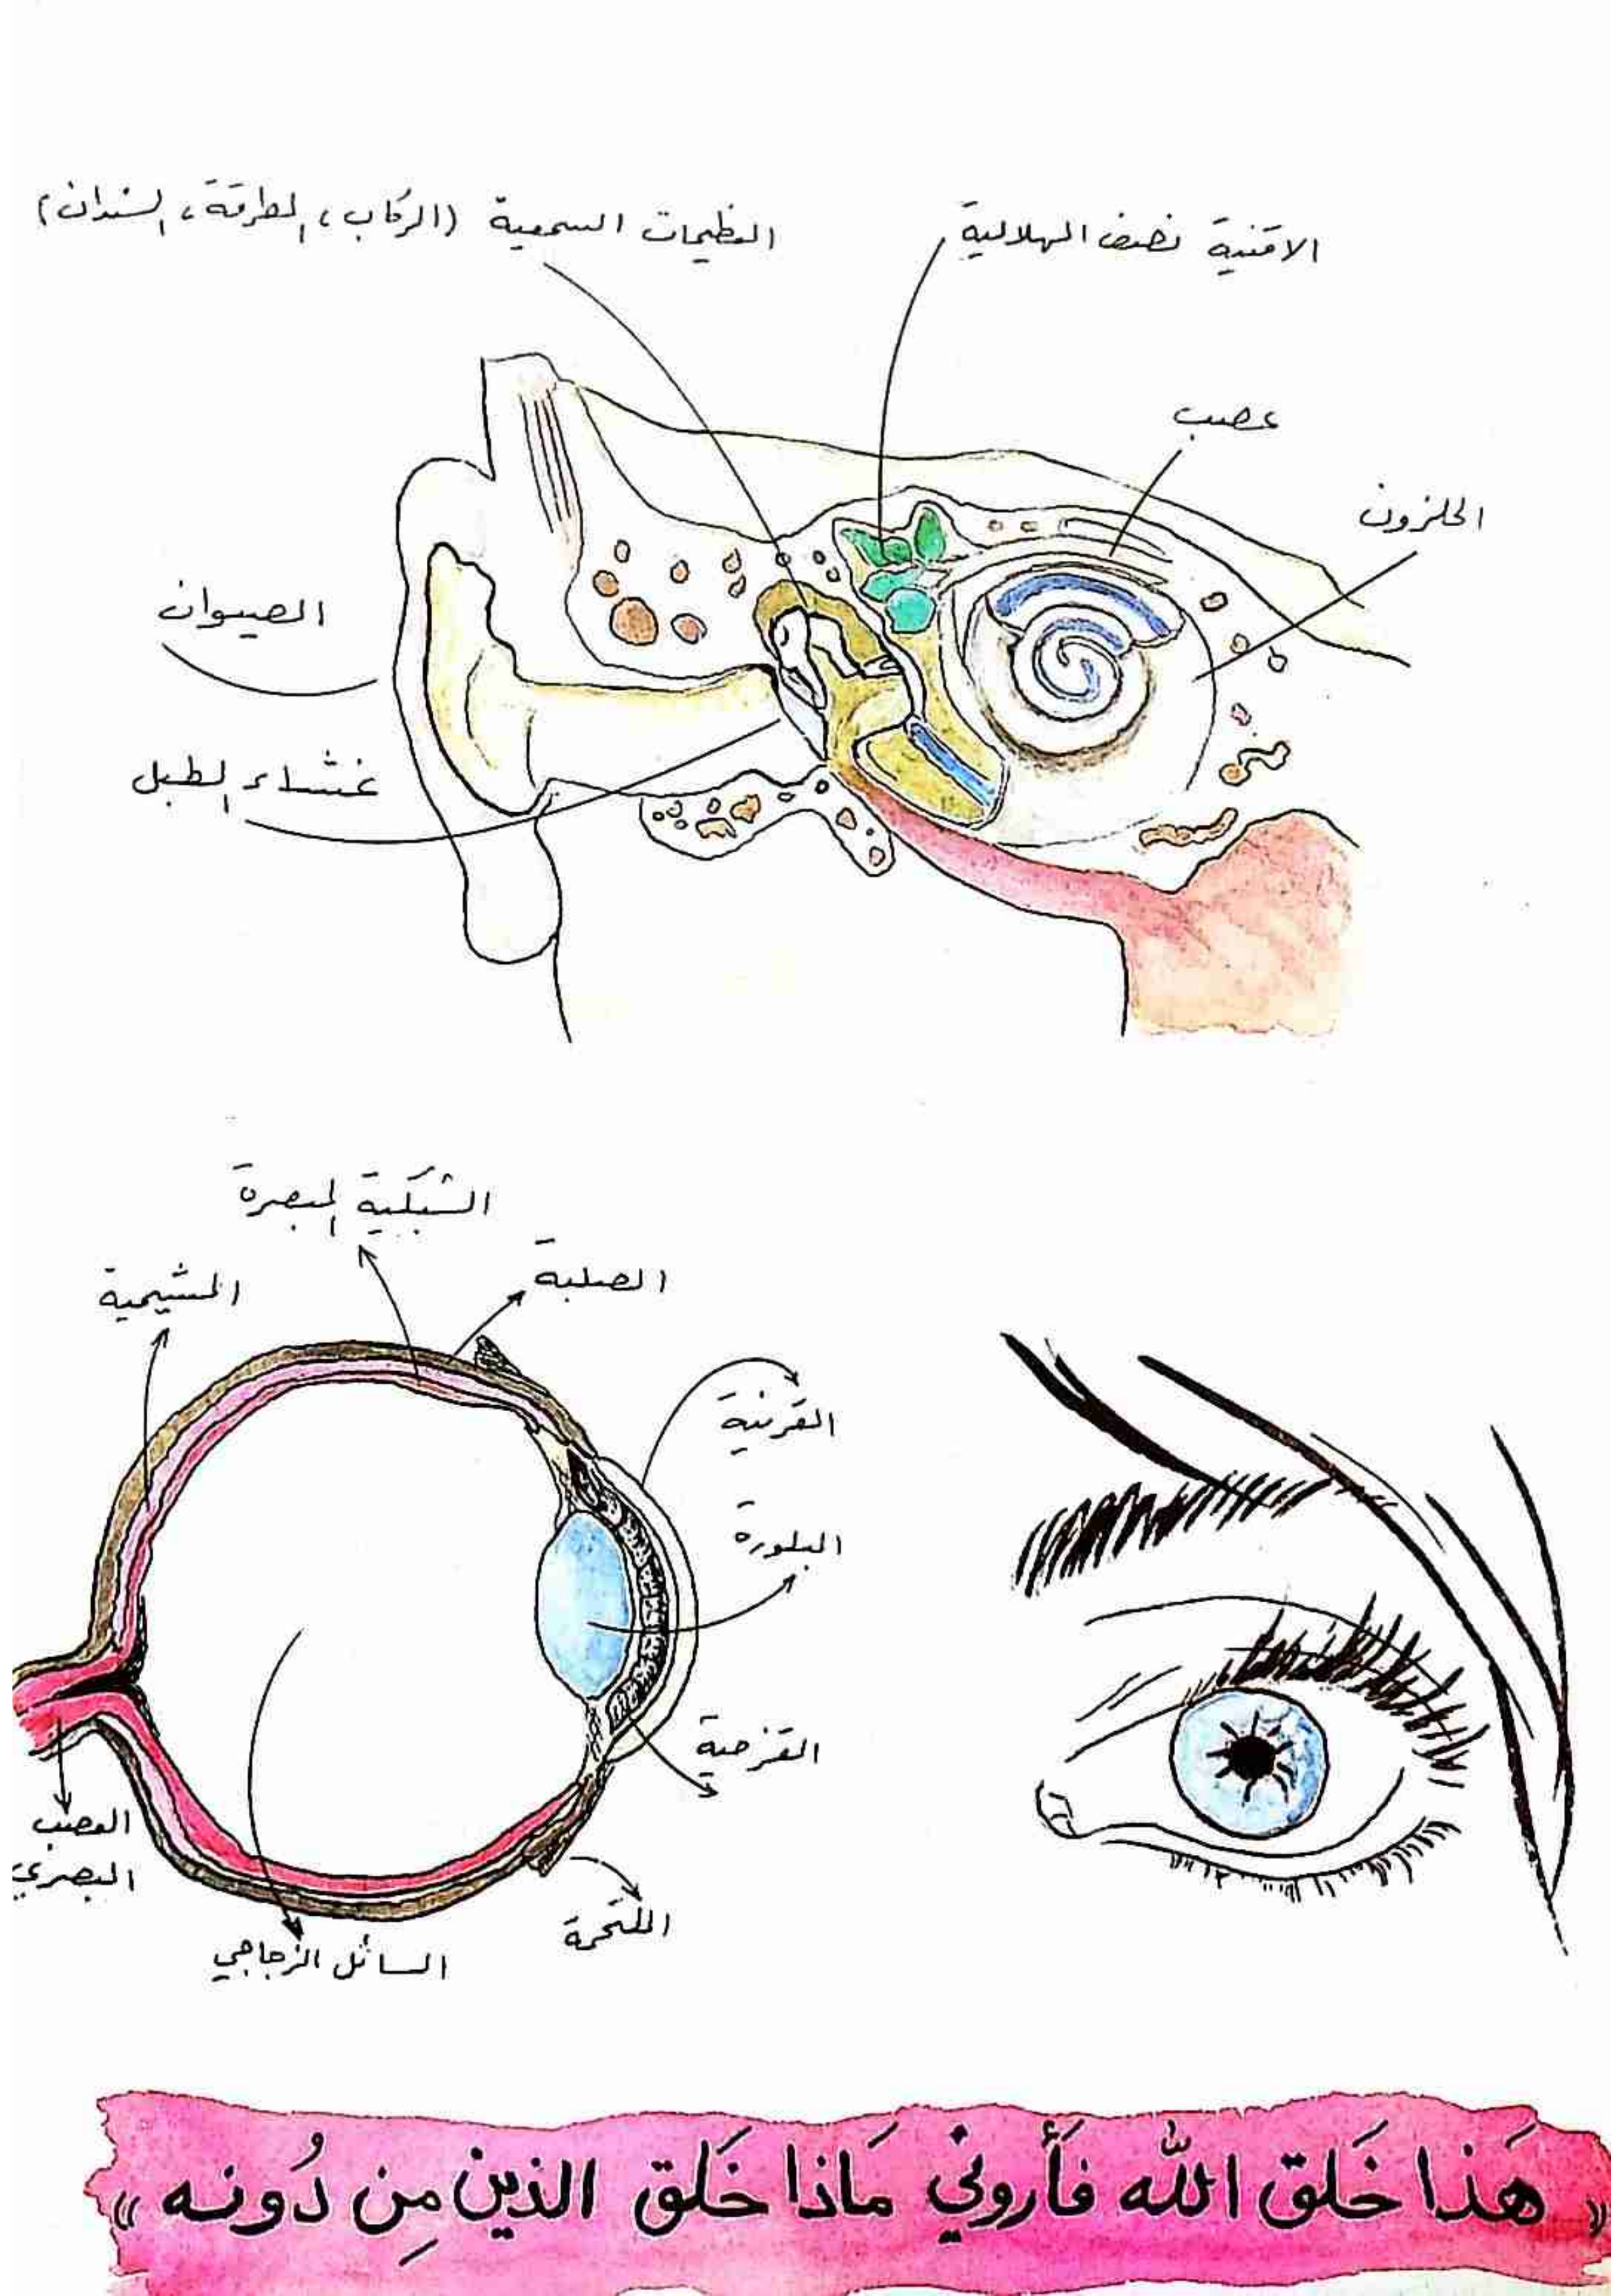 الاقنية نصف الهلالية
العظيمات السمعية (الركاب، المطرقة، السندان)
عصب
الحلزون
الصيوان
غشاء الطبل
الشبكية المبصرة
الصلبة
المشيمية
القرنية
البلورة
القزحية
العصب
البصري
الملتحمة
السائل الزجاجي
« هَذا خَلق الله فَأَروني مَاذا خَلَق الذين مِن دُونه »